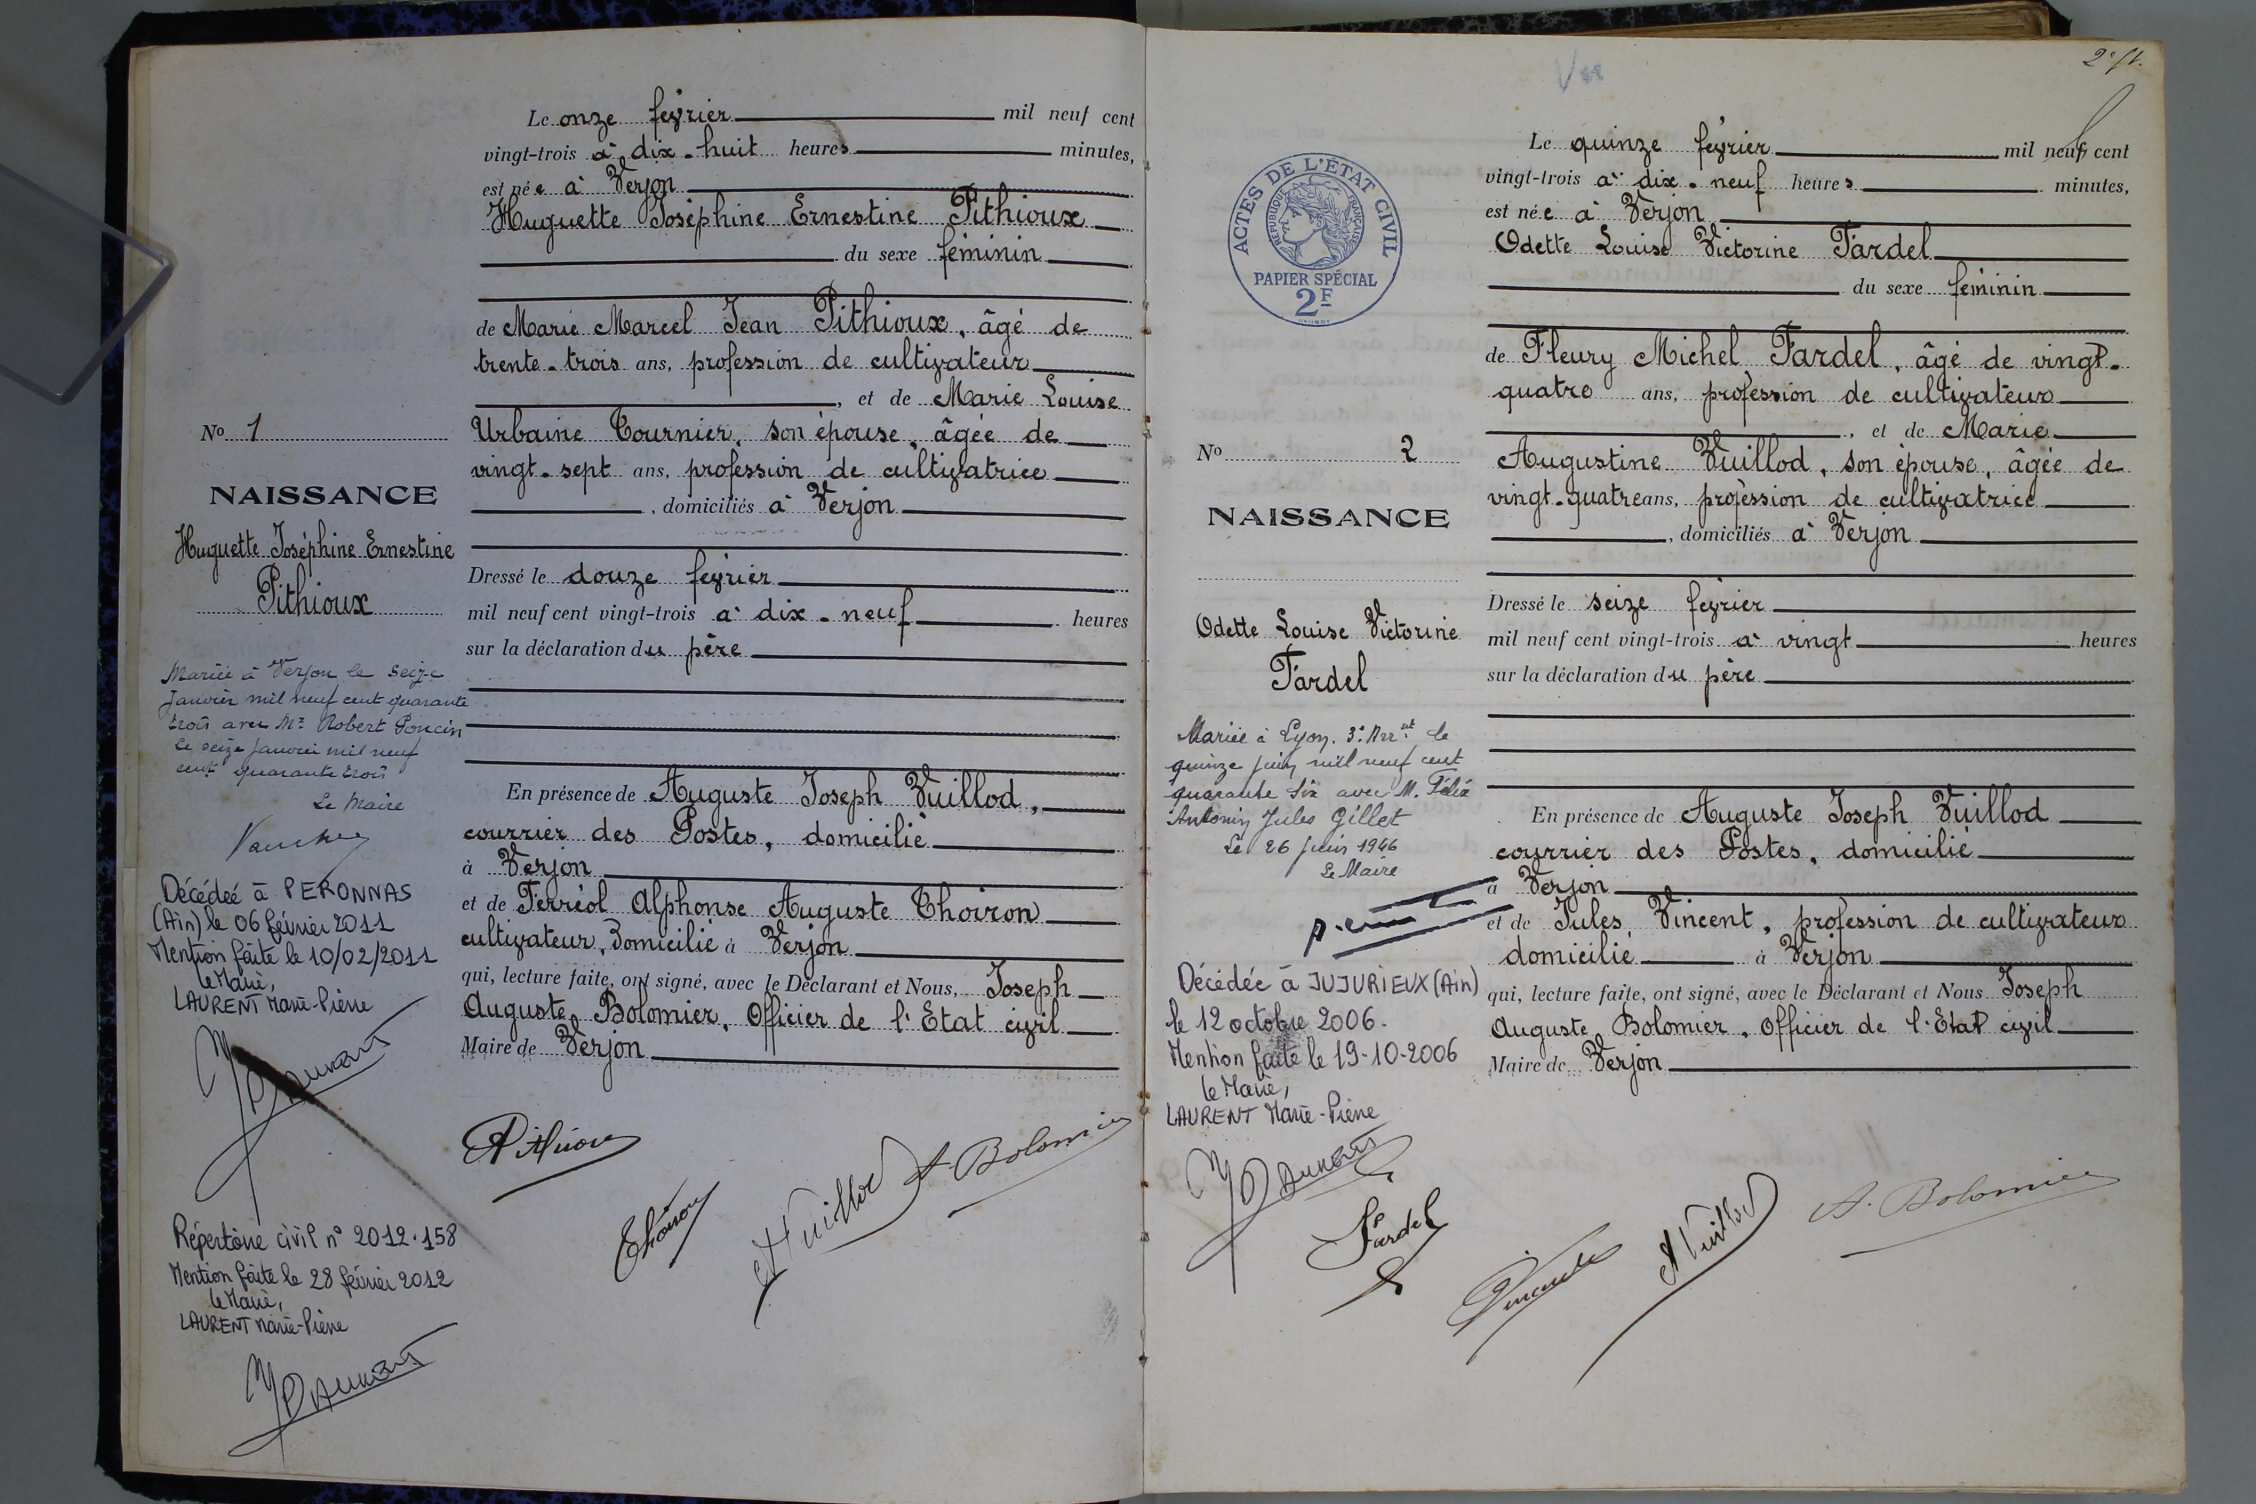 Le onze février mil neuf cent
vingt-trois à dix-huit heures minutes,
est née à Verjon
Huguette Joséphine Ernestine Pithioux
du sexe féminin
de Marie Marcel Jean Pithioux, âgé de
trente-trois ans, profession de cultivateur
, et de Marie Louise
Urbaine Tournier, son épouse, âgée de
vingt-sept ans, profession de cultivatrice
, domiciliés à Verjon
Dressé le douze février
mil neuf cent vingt-trois à dix-neuf heures
sur la déclaration du père
En présence de Auguste Joseph Vuillod,
courrier des Postes, domicilié
à Verjon
et de Ferréol Alphonse Auguste Thoiron
cultivateur, domicilié à Verjon
qui, lecture faite, ont signé, avec le Déclarant et Nous, Joseph
Auguste Bolomier, Officier de l'Etat civil
Maire de Verjon
Pithioux
Thoiron
A Vuillod
A. Bolomier
No 1
NAISSANCE
Huguette Joséphine Ernestine
Pithioux
Mariée à Verjon le seize
Janvier mil neuf cent quarante
trois avec Mr Robert Poncin
Le seize janvier mil neuf
cent quarante trois
Le Maire
Décédée à PERONNAS
(Ain) le 06 février 2011
Mention faite le 10/02/2011
le Maire,
LAURENT Marie-Pierre
Répertoire civil n° 2012.158
Mention faite le 28 février 2012
le Maire,
LAURENT Marie-Pierre
2e ft.
Le quinze février mil neuf cent
vingt-trois à dix-neuf heures minutes,
est née à Verjon
Odette Louise Victorine Fardel
du sexe féminin
de Fleury Michel Fardel, âgé de vingt-
quatre ans, profession de cultivateur
, et de Marie
Augustine Vuillod, son épouse, âgée de
vingt-quatre ans, profession de cultivatrice
, domiciliés à Verjon
Dressé le seize février
mil neuf cent vingt-trois à vingt heures
sur la déclaration du père
En présence de Auguste Joseph Vuillod
courrier des Postes, domicilié
à Verjon
et de Jules Vincent, profession de cultivateur
domicilié à Verjon
qui, lecture faite, ont signé, avec le Déclarant et Nous Joseph
Auguste Bolomier, Officier de l'Etat civil
Maire de Verjon
Fardel
Vincent
A Vuillod
A. Bolomier
ACTES DE L'ÉTAT CIVIL
RÉPUBLIQUE FRANÇAISE
PAPIER SPÉCIAL
2F
No 2
NAISSANCE
Odette Louise Victorine
Fardel
Mariée à Lyon. 3e Arrt le
quinze juin mil neuf cent
quarante six avec M. Félix
Antonin Jules Gillet
Le 26 juin 1946
Le Maire
Décédée à JUJURIEUX (Ain)
le 12 octobre 2006.
Mention faite le 19-10-2006
le Maire,
LAURENT Marie-Pierre